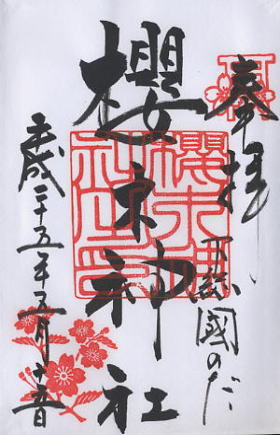 奉拝
下総國のだ
櫻木神社
櫻木神社印
平成二十五年五月六日